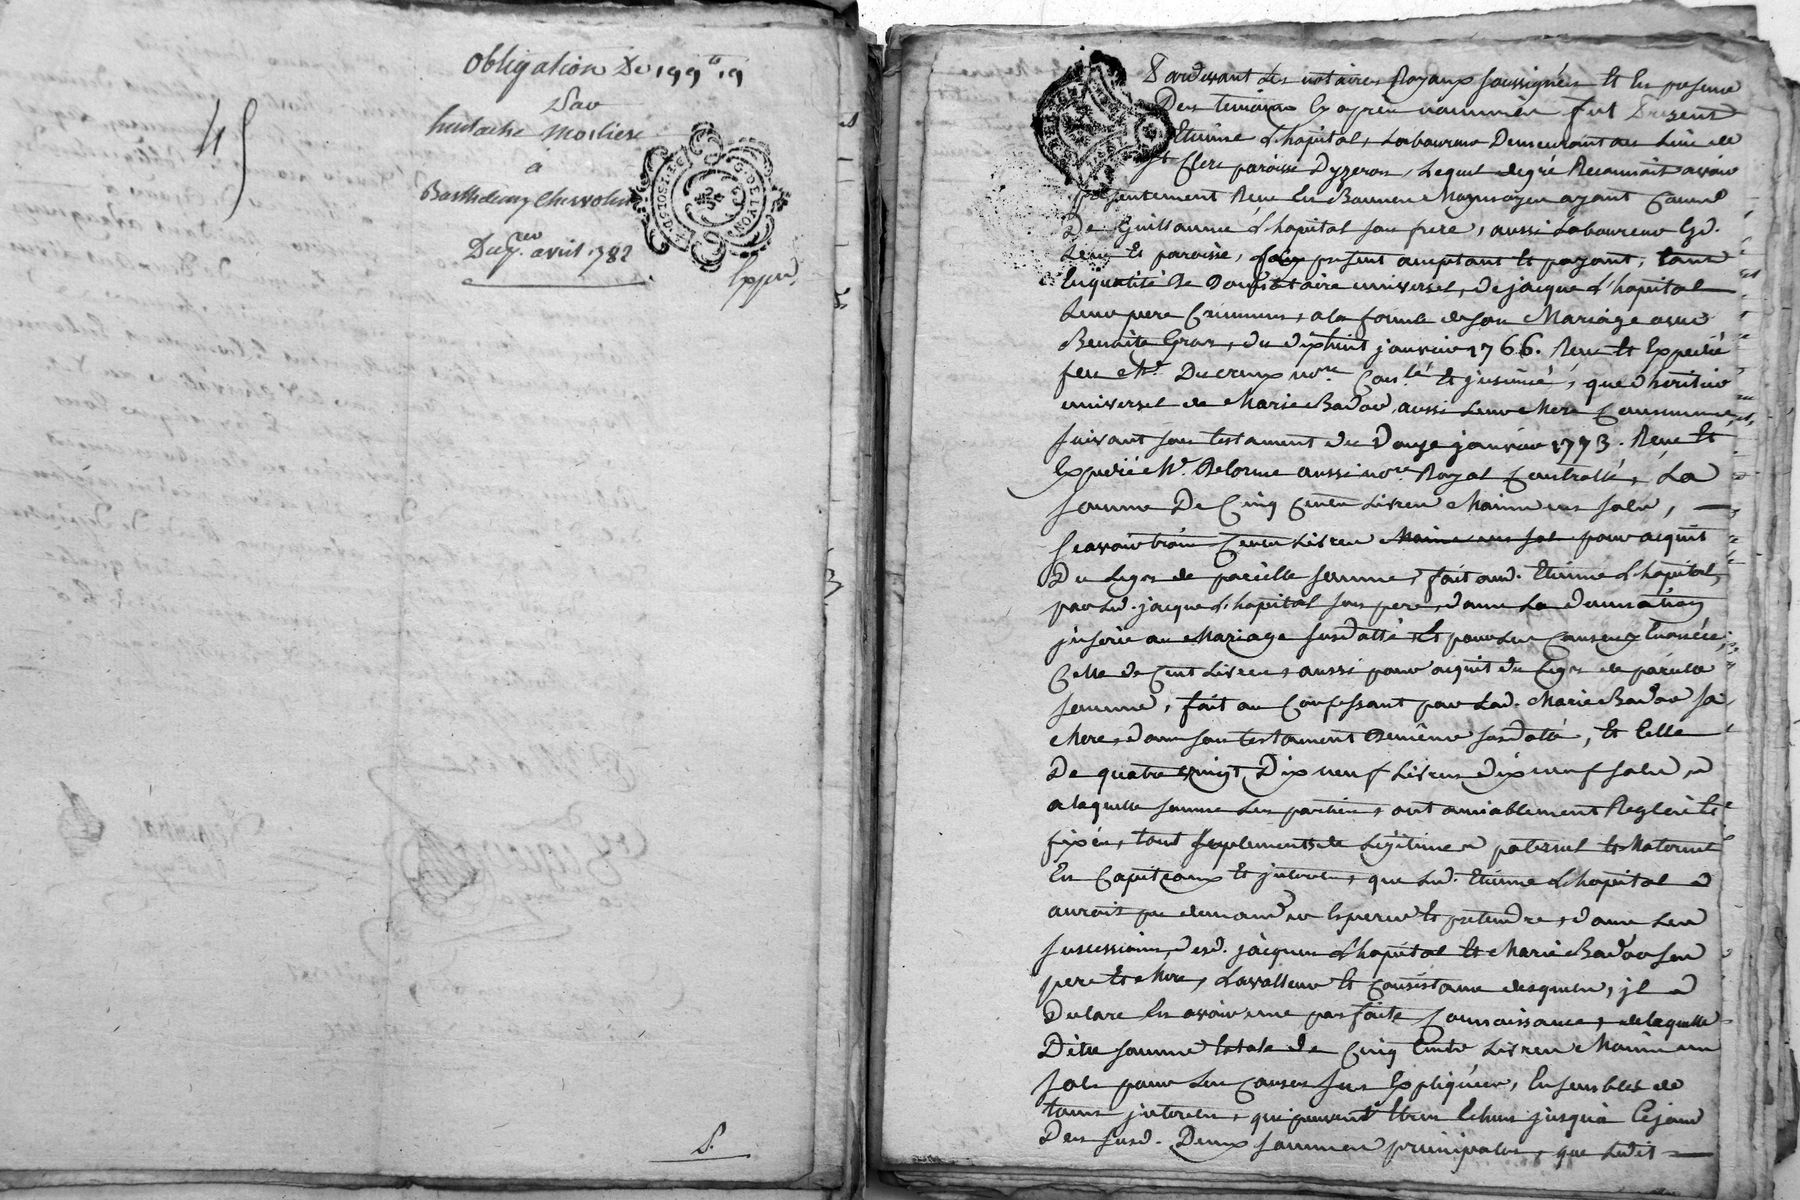 45
Obligation De 199# 19
Par
hustache Moliere
à
Barthelemy Chervolin
Du 9 avril 1782
Expié.
S.
Pardevant les notaires Royaux soussignés Et En presence
Des temoins Cy apres nommés fut Present
Etienne L'hopital, Laboureur Demeurant au Lieu de
St. Clere paroisse Dyzeron, Lequel de gré Reconnoit avoir
presentement Receu En Bonne Monnoye ayant Cours
De Guillaume L'hopital son frere, aussi Laboureur Gd.
Lieu Et paroisse, present acceptant Et payant, tant
En qualité De Donataire universel, de jacque L'hopital
Leur pere Commun, a la forme de son Mariage avec
Benoite Gros, du dixhuit janvier 1766. Receu Et Expedié
feu Me. Ducreux nore. Conlé. Et jnsinué, que d'heritier
universel de Marie Badoo, aussi Leur Mere Commune,
suivant son testament du Douze janvier 1773. Receu Et
Expedié Me. Delorme aussi nore. Royal Controllé, La
somme De Cinq Cents Livres Moins un sols,
sçavoir trois Cents Livres Moins un sol pour acquit
Du Legs de pareille somme, fait aud. Etienne L'hopital,
par Led. jacque L'hopital son pere, dans La donnation
jnserée au Mariage susdatté Et pour Les Causes y Enoncées,
Celle de Cent Livres, aussi pour acquit du Legs de pareille
somme, fait au Confessant par Lad. Marie Badoo sa
Mere, dans son testament De même susdaté, Et Celle
De quatre vingt Dix neuf Livres dix neuf sols, a
a laquelle somme Les parties, ont amiablement Reglé Et
fixée, tout suplements de Légitime paternel Et Maternel
En Capiteaux Et jnterets, que Led. Etienne L'hopital
auroit pu demander Esperer Et pretendre, dans Les
successions, desd. jacques L'hopital Et Marie Badoo ses
pere Et Mere, La valleur Et Consistance desquels, jl a
Declaré En avoir une parfaite Connoissance, de laquelle
Dite somme totale de Cinq Cents Livres Moins un
sols pour Les Causes sus Expliquées, Ensembles de
tous jnterets, qui peuvent Etres Echus jusqu'a Cejour
Des susd. Deux sommes principales, que Ledit